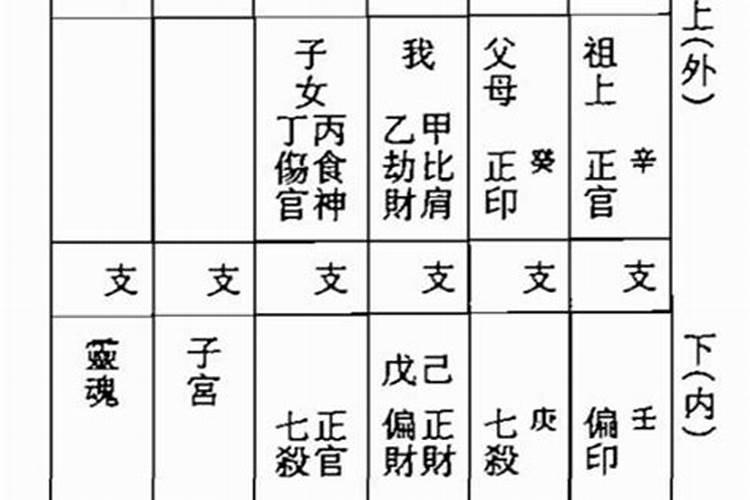 上(外)
祖上
辛
正官
父母
癸
正印
我
甲比肩
乙劫財
子女
丙食神
丁傷官
支
支
支
支
支
支
下(内)
壬
偏印
庚
七殺
己正財
戊偏財
正官
七殺
子宮
靈魂